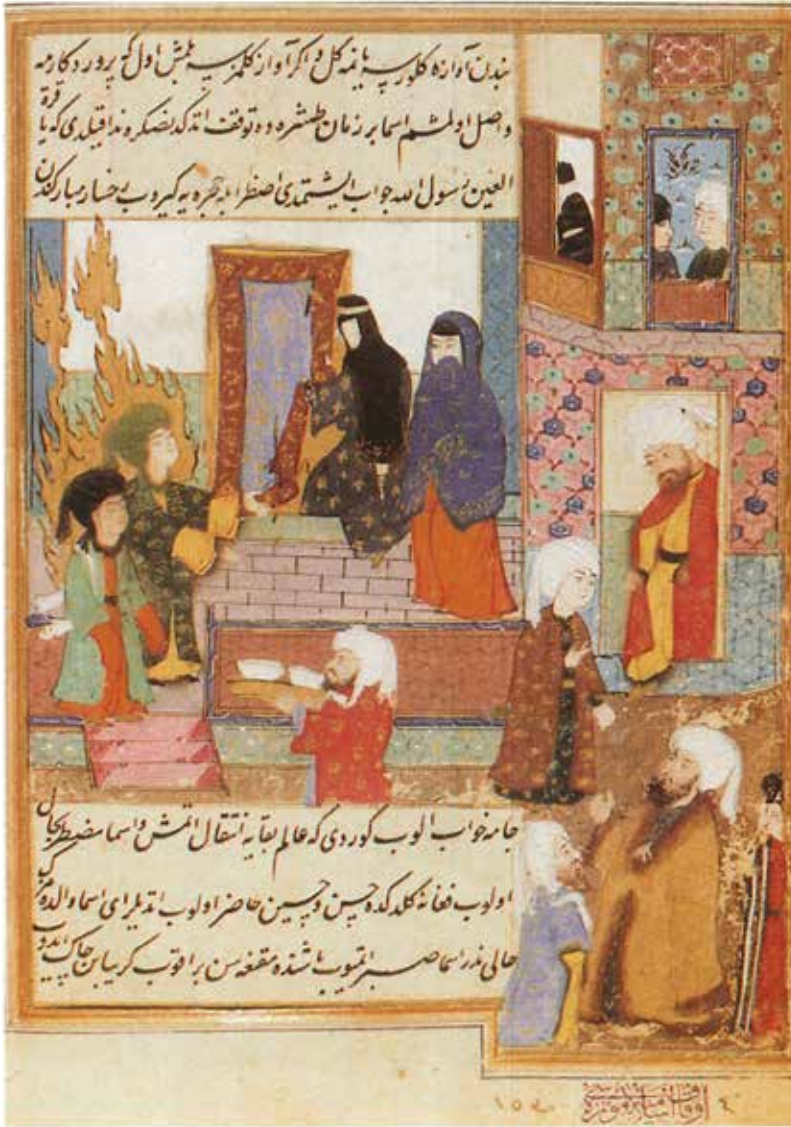 بندن آوازه کلورسه یانمه کل و اکر آواز کلمزسه بلمش اول که پروردکارمه
واصل اولمشم اسما بر زمان طشره ده توقف اتدکدنصکره ندا قیلدی که یا قرة
العین رسول الله جواب ایشتمدی اضطرابله حجره یه کیروب رخسار مبارکندن
جامه خواب الوب کوردی که عالم بقایه انتقال اتمش و اسما مضطرب الحال
اولوب فغانه کلدکده حسن و حسین حاضر اولوب اتدیلر ای اسما والده مزک
حالی ندر اسما صبر اتمیوب باشنده مقنعه سن براقوب کریبانن چاک ایدوب
اوقاف اسلامیه موزه سی